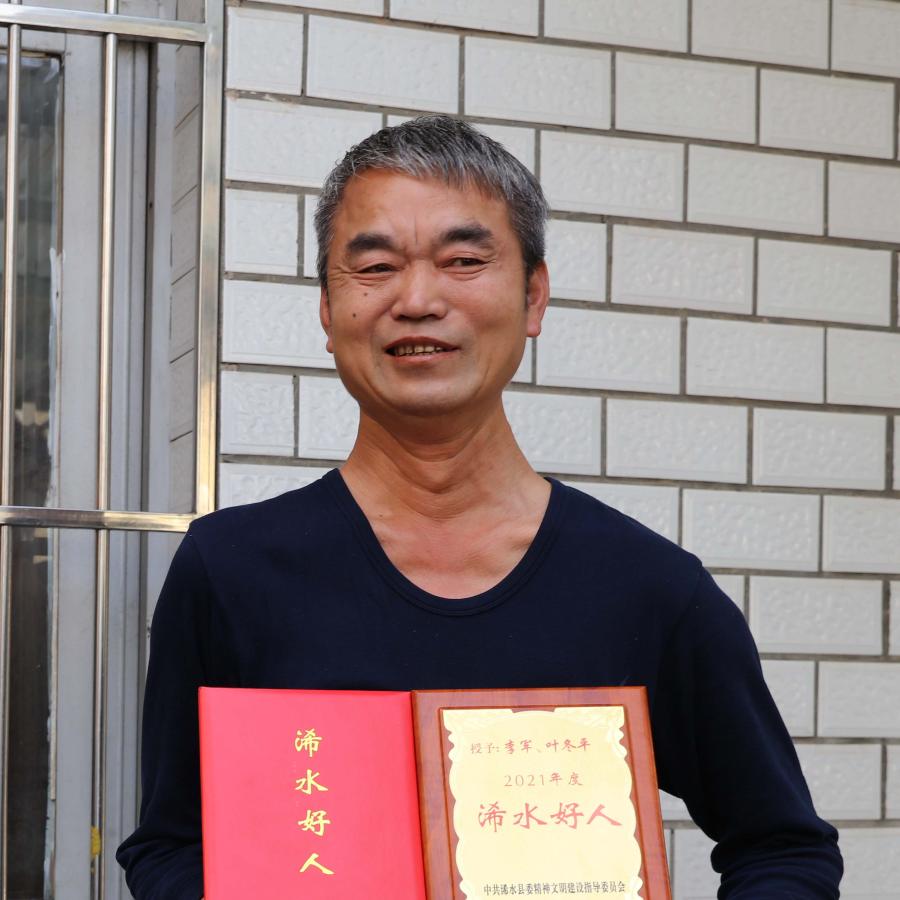 浠
水
好
人
授予:李军、叶冬平
2021年度
浠水好人
中共浠水县委精神文明建设指导委员会